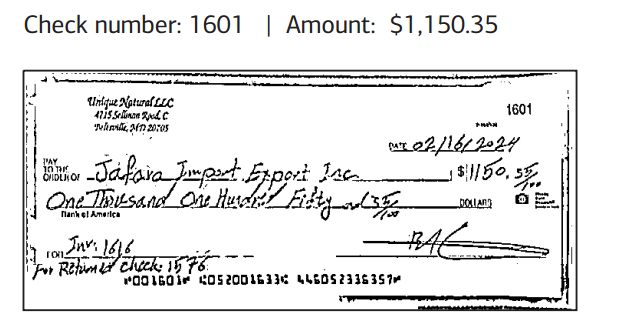 Check number: 1601 | Amount: $1,150.35
Unique Natural LLC
4115 Sellman Road, C
Beltsville, MD 20705
1601
DATE 02/16/2024
PAY
TO THE
ORDER OF Jafara Import Export Inc $1150.35/100
One Thousand One Hundred Fifty and 35/100 DOLLARS
Bank of America
FOR Inv: 1616
For Returned check: 1576
⑈001601⑈ ⑆052001633⑆ 446052336357⑈